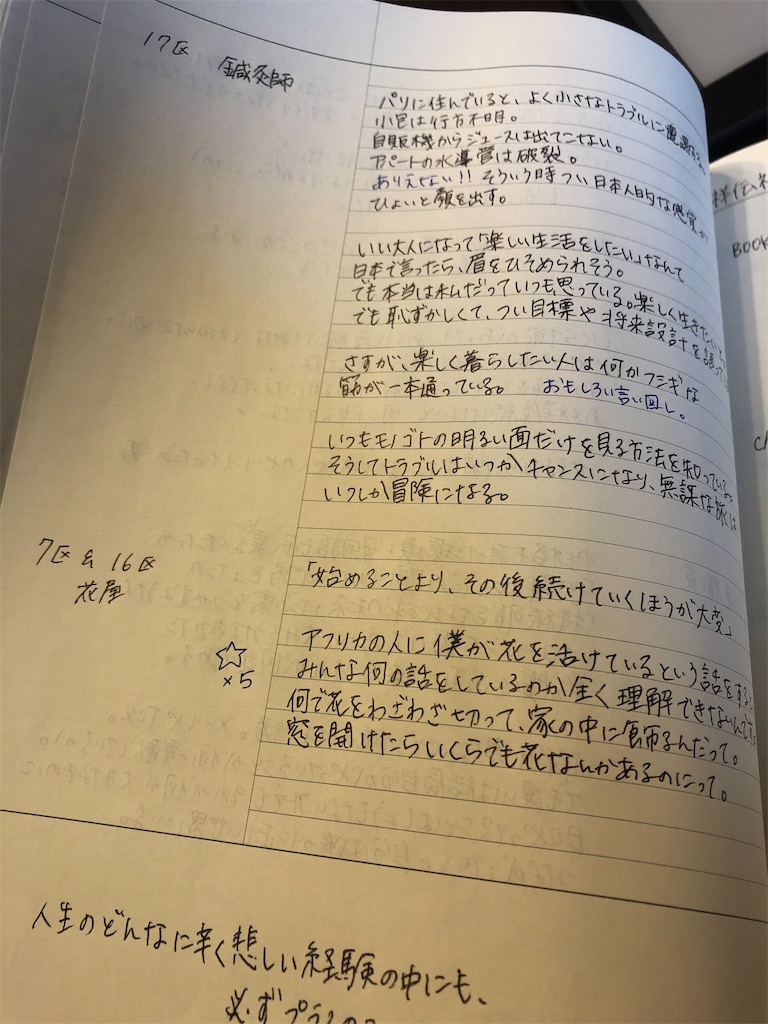 17区 鍼灸師
パリに住んでいると、よく小さなトラブルに遭遇する。
小包は行方不明。
自販機からジュースは出てこない。
アパートの水道管は破裂。
ありえない!! そういう時つい日本人的な感覚が
ひょいと顔を出す。
いい大人になって「楽しい生活をしたい」なんて
日本で言ったら、眉をひそめられそう。
でも本当は私だっていつも思っている。楽しく生きたい
でも恥ずかしくて、つい目標や将来設計を語って
さすが、楽しく暮らしたい人は何かフシギな
筋が一本通っている。 おもしろい言い回し。
いつもモノゴトの明るい面だけを見る方法を知っている。
そうしてトラブルはいつかチャンスになり、無謀な旅は
いつしか冒険になる。
7区 & 16区
花屋
「始めることより、その後続けていくほうが大変」
☆×5
アフリカの人に僕が花を活けているという話をする
みんな何の話をしているのか全く理解できないんです
何で花をわざわざ切って、家の中に飾るんだって。
窓を開けたらいくらでも花なんかあるのにって。
人生のどんなに辛く悲しい経験の中にも、
必ずプラ
BOOK